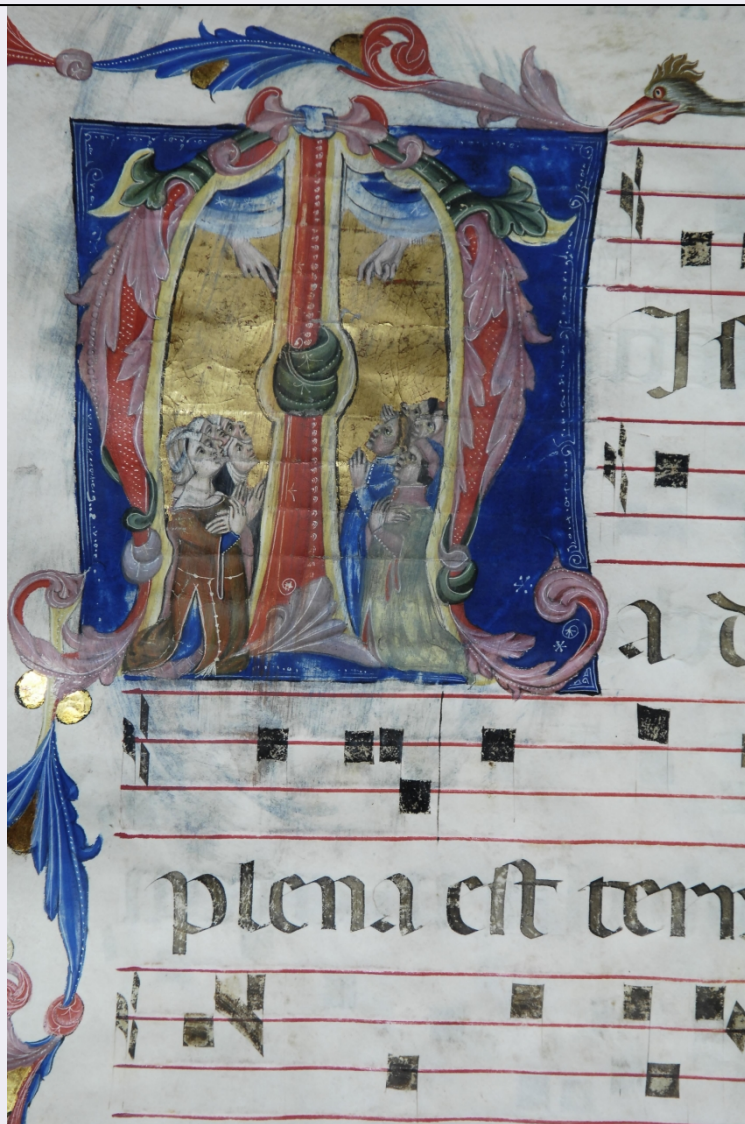 MI
a d
plena est terr